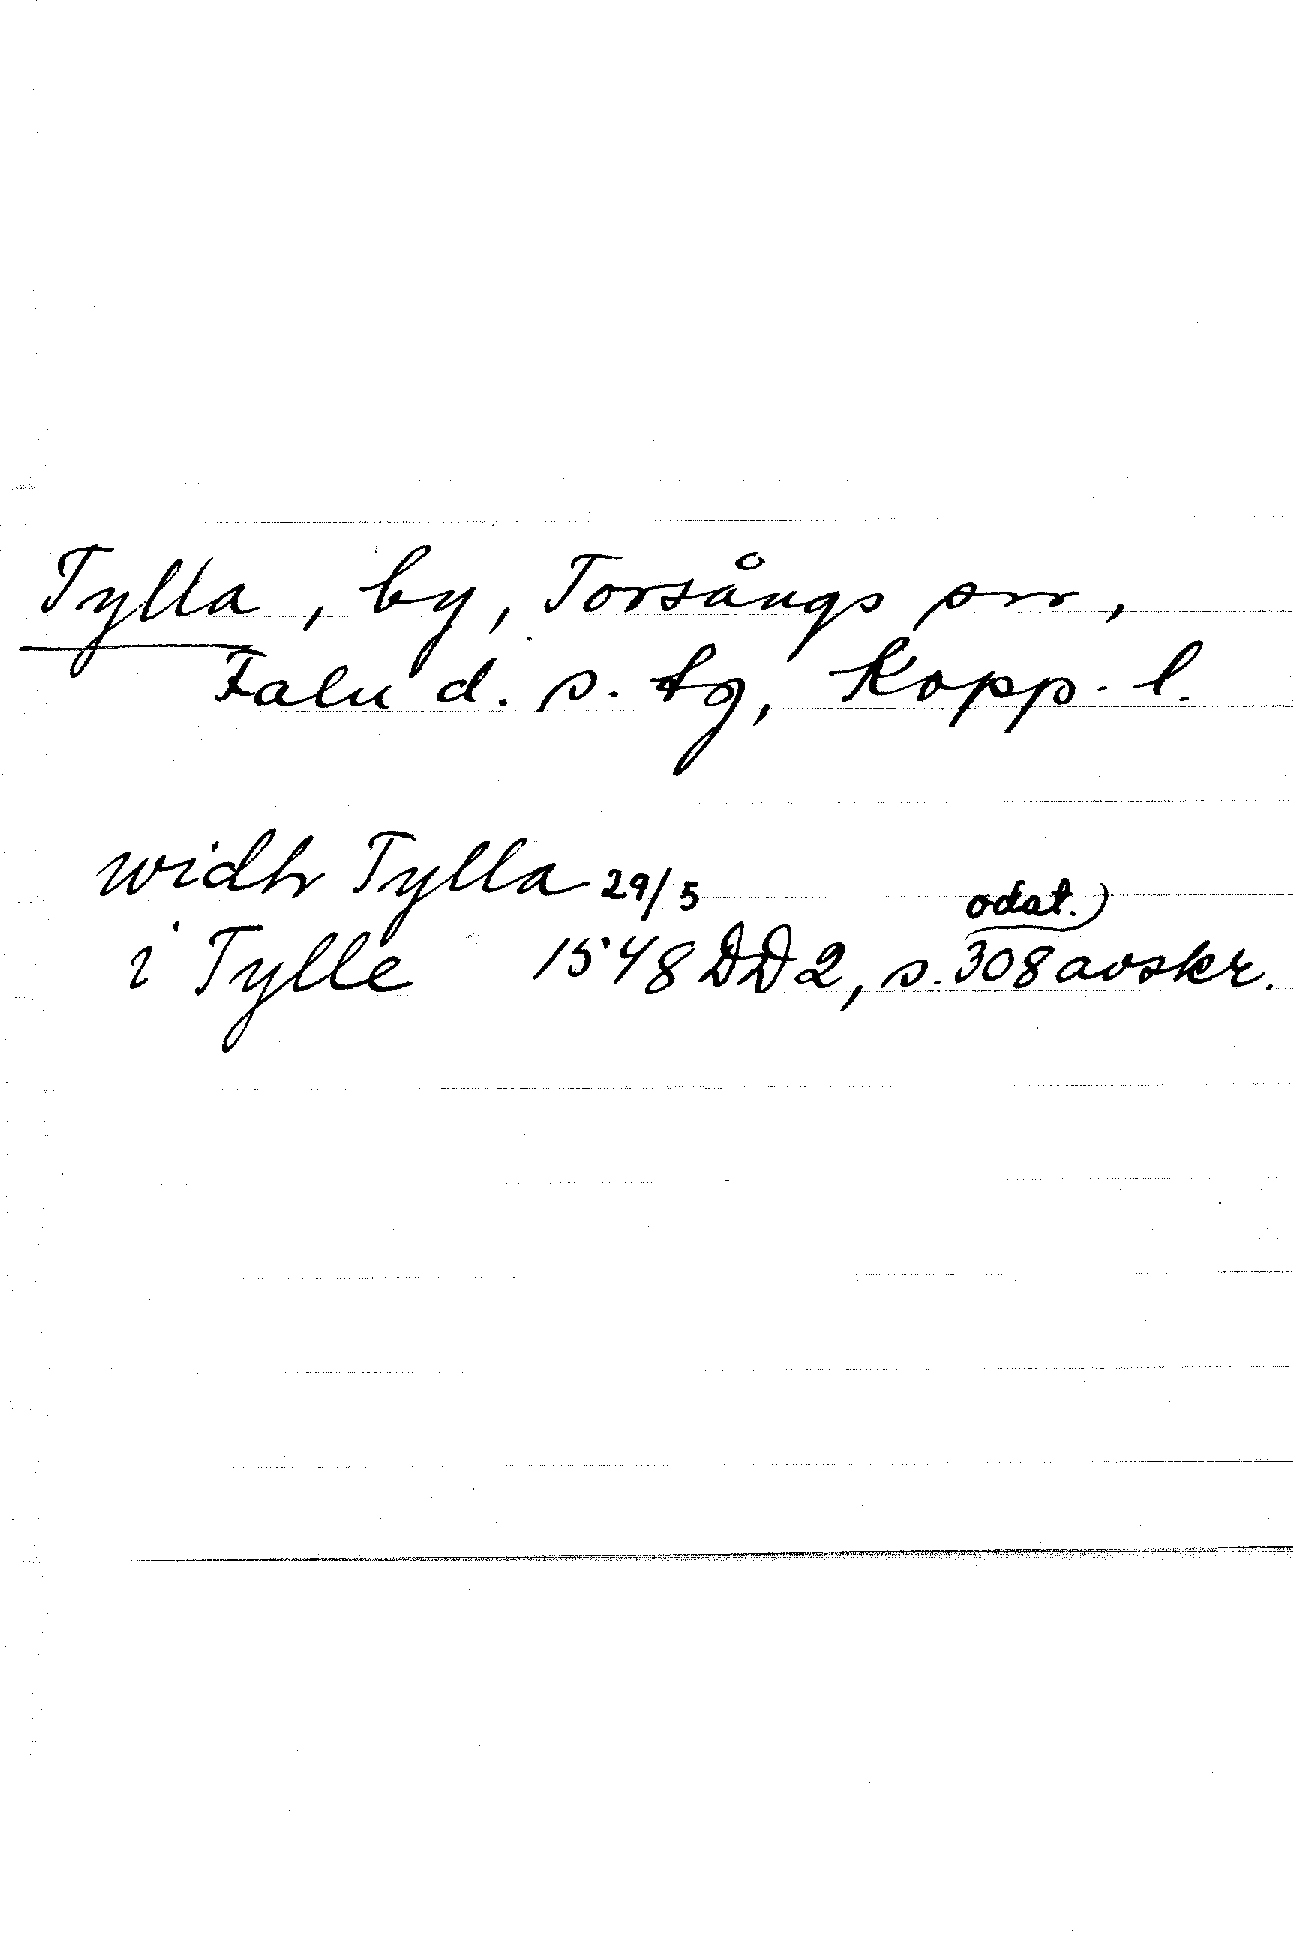 Tylla, by, Torsångs sn,
Falu d. s. tg, Kopp. l.
widh Tylla 29/5
odat.)
i Tylle 1548 DD2, s. 308 avskr.